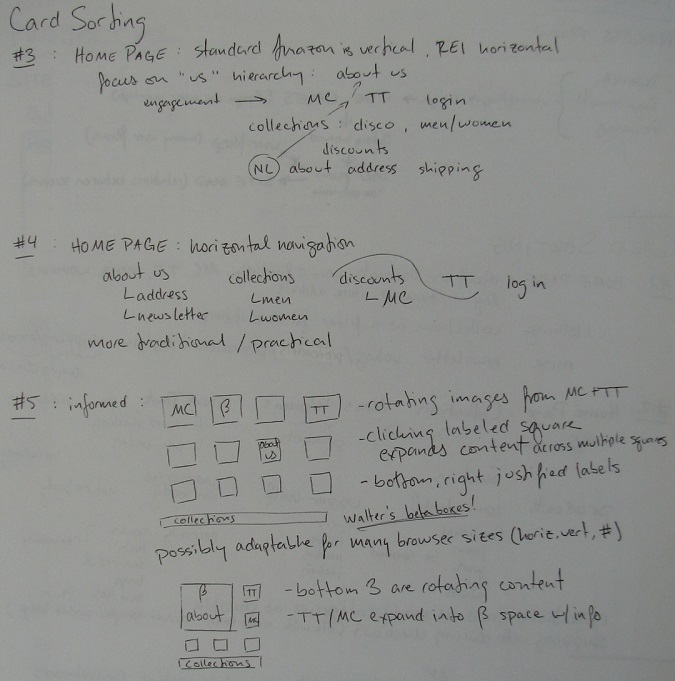 Card Sorting
#3 : HOME PAGE : standard Amazon is vertical, REI horizontal
focus on "us" hierarchy : about us
engagement → MC TT login
collections : disco, men/women
discounts
NL about address shipping
#4 : HOME PAGE : horizontal navigation
about us collections discounts TT log in
address men MC
newsletter women
more traditional / practical
#5 : informed :
MC β TT
- rotating images from MC + TT
- clicling labeled square
about us
expands content across multiple squares
- bottom, right justified labels
collections
walter's beta boxes!
possibly adaptable for many browser sizes (horiz, vert, #)
β TT
about MC
- bottom 3 are rotating content
- TT/MC expand into β space w/info
collections